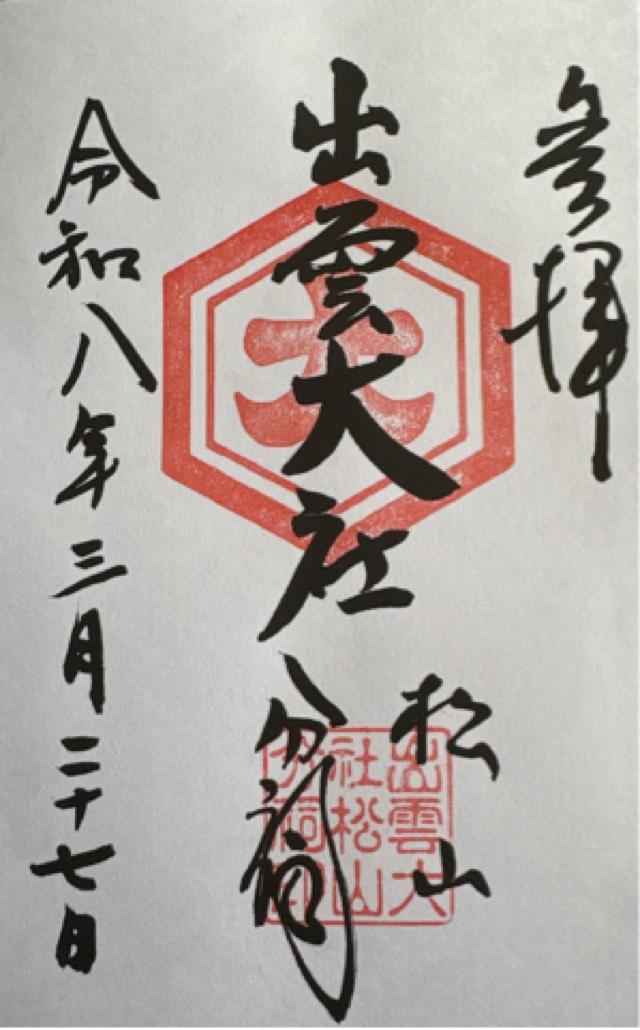 参拝
出雲大社
松山
分祠
令和八年三月二十七日
大
出雲大
社松山
分祠印